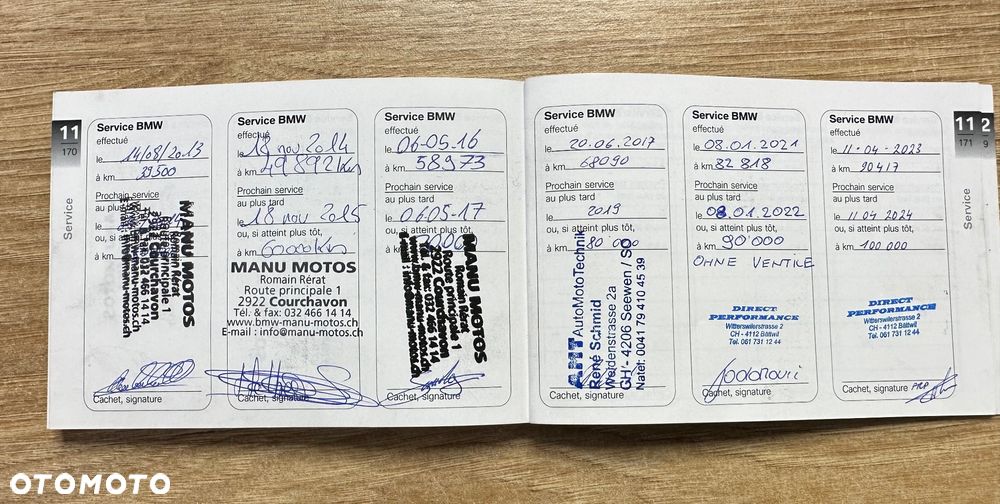 11
170
Service
Service BMW
effectué
le 14/08/2013
à km 39500
Prochain service
au plus tard
le
ou, si atteint plus tôt,
à km
MANU MOTOS
Romain Rérat
Route principale 1
2922 Courchavon
Tél. & fax: 032 466 14 14
www.bmw-manu-motos.ch
Cachet, signature
Service BMW
effectué
le 18 nov 2014
à km 49892 km
Prochain service
au plus tard
le 18 nov 2015
ou, si atteint plus tôt,
à km 60000 km
MANU MOTOS
Romain Rérat
Route principale 1
2922 Courchavon
Tél. & fax: 032 466 14 14
www.bmw-manu-motos.ch
E-mail : info@manu-motos.ch
Cachet, signature
Service BMW
effectué
le 06-05-16
à km 58973
Prochain service
au plus tard
le 06.05-17
ou, si atteint plus tôt,
à km
MANU MOTOS
Romain Rérat
Route principale 1
2922 Courchavon
Tél. & fax: 032 466 14 14
www.bmw-manu-motos.ch
Cachet, signature
Service BMW
effectué
le 20.06.2017
à km 68090
Prochain service
au plus tard
le 2019
ou, si atteint plus tôt,
à km 80'000
AMT AutoMotoTechnik
René Schmid
Weidenstrasse 2a
CH - 4206 Seewen / SO
Natel: 0041 79 410 45 39
Cachet, signature
Service BMW
effectué
le 08.01.2021
à km 82 818
Prochain service
au plus tard
le 08.01.2022
ou, si atteint plus tôt,
à km 90'000
OHNE VENTILE
DIRECT
PERFORMANCE
Witterswilerstrasse 2
CH - 4112 Bättwil
Tel. 061 731 12 44
Cachet, signature
Service BMW
effectué
le 11.04.2023
à km 90417
Prochain service
au plus tard
le 11 04 2024
ou, si atteint plus tôt,
à km 100 000
DIRECT
PERFORMANCE
Witterswilerstrasse 2
CH - 4112 Bättwil
Tel. 061 731 12 44
Cachet, signature
11
171
2
9
Service
OTOMOTO